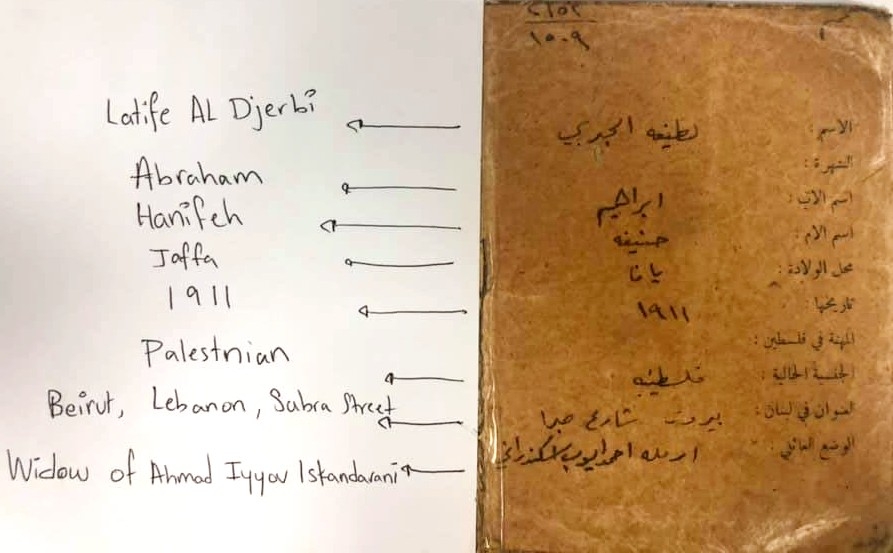 Latife AL Djerbi
Abraham
Hanifeh
Jaffa
1911
Palestnian
Beirut, Lebanon, Sabra Street
Widow of Ahmad Iyyov Iskandarani
١٥٠٩
الاسم : لطيفه الجربي
الشهرة :
اسم الاب : ابراهيم
اسم الام : حنيفه
محل الولادة : يافا
تاريخها : ١٩١١
المهنة في فلسطين :
الجنسية الحالية : فلسطينيه
العنوان في لبنان : بيروت شارع صبرا
الوضع العائلي : ارمله احمد ايوب اسكندراني